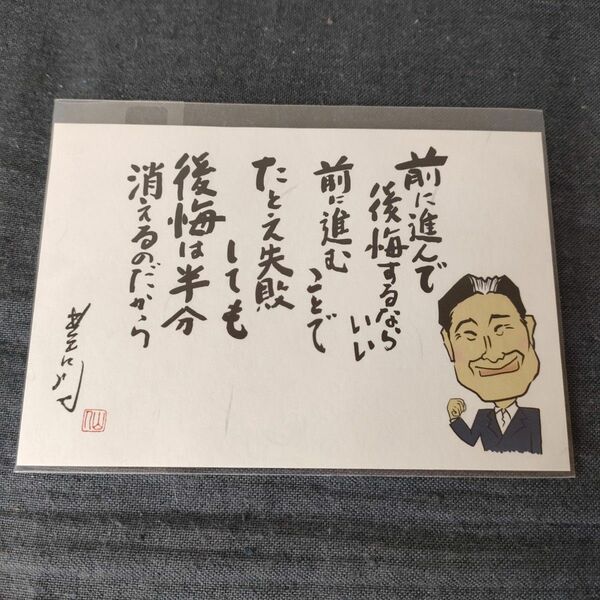 前に進んで
後悔するなら
いい
前に進む
ことで
たとえ失敗
しても
後悔は半分
消えるのだから